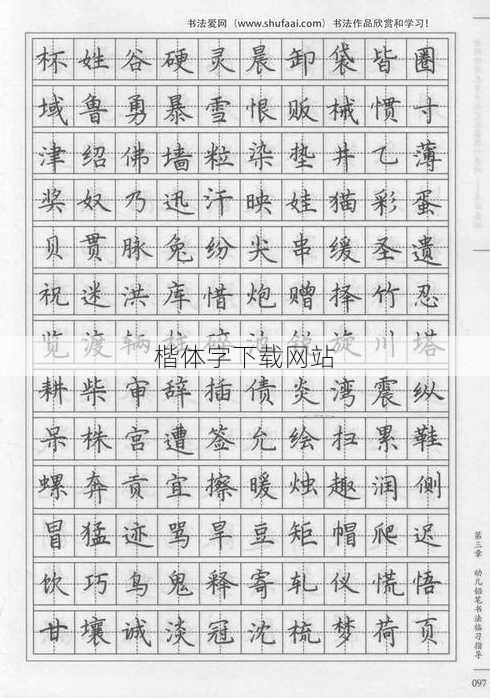 书法爱网（www.shufaai.com）书法作品欣赏和学习！
杯姓谷硬灵晨卸袋皆圈
域鲁勇暴雪恨贩械惯寸
津绍佛墙粒染垫井乙薄
奖奴乃迅汗映娃猫彩蛋
贝贯脉兔纷尖串缓圣遗
祝迷洪库惜炮赠择竹忍
览渡辆 旋川塔
楷体字下载网站
耕柴审辞插债炎湾震纵
呆株宫遭签允绘扫累鞋
螺奔贡宜擦暖烛趣润侧
冒猛迹骂旱豆矩帽爬迟
饮巧鸟鬼释寄轧仪慌悟
甘壤诚淡冠沈梳梦荷页
第三章 幼儿铅笔书法临习指导
097